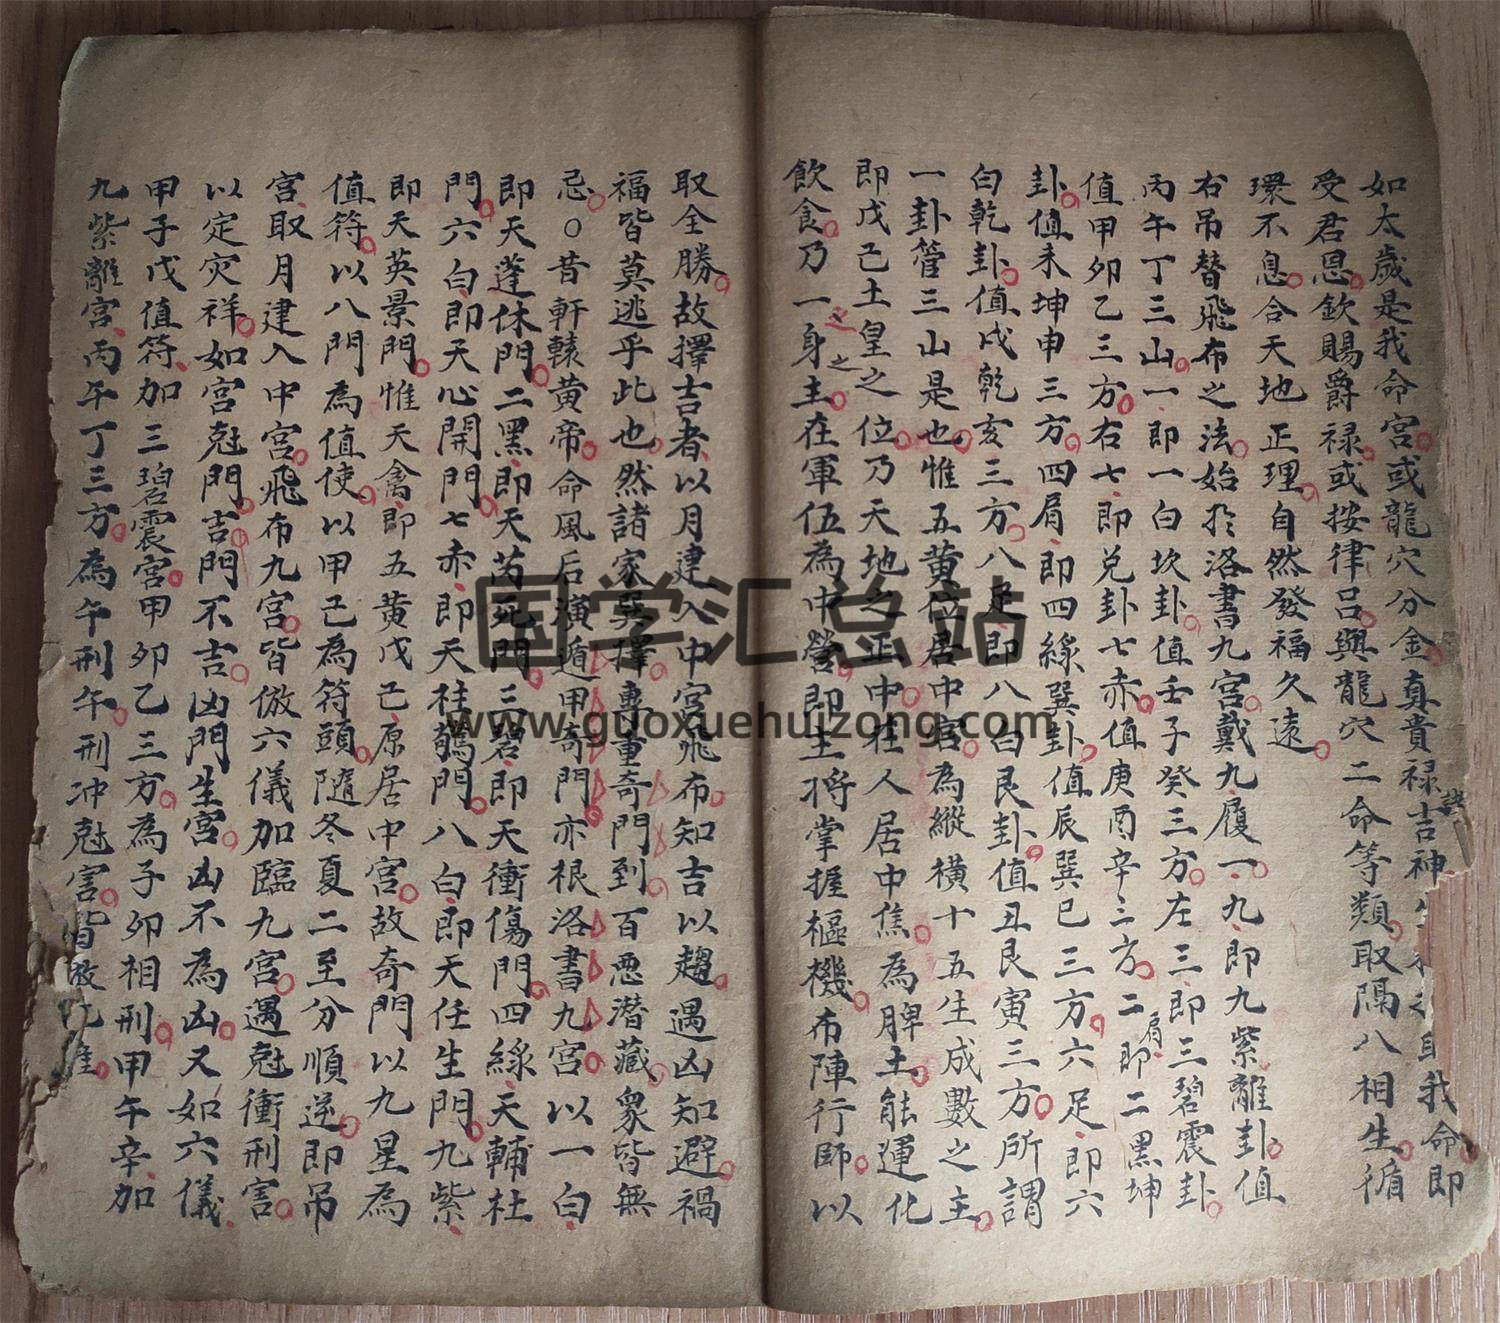 如太歲是我命宮或龍穴分金真貴祿吉神自我命即
受君恩欽賜爵祿或按律呂與龍穴二命等類取隔八相生循
環不息合天地正理自然發福久遠
右吊替飛布之法始於洛書九宮戴九履一九即九紫離卦值
丙午丁三山一即一白坎卦值壬子癸三方左三即三碧震卦
值甲卯乙三方右七即兌卦七赤值庚酉辛三方二肩即二黑坤
卦值未坤申三方四肩即四綠巽卦值辰巽巳三方六足即六
白乾卦值戌乾亥三方八足即八白艮卦值丑艮寅三方所謂
一卦管三山是也惟五黄位居中宮為縱橫十五生成數之主
即戊己土皇之位乃天地之正中在人居中焦為脾土能運化
飲食乃一身之主在軍伍為中營即主將掌握樞機布陣行師以
取全勝故擇吉者以月建入中宮飛布知吉以趨遇凶知避禍
福皆莫逃乎此也然諸家巽擇專重奇門到百惡潛藏衆皆無
忌○昔軒轅黄帝命風后演遁甲奇門亦根洛書九宮以一白
即天蓬休門二黑即天芮死門三碧即天衝傷門四綠天輔杜
門六白即天心開門七赤即天柱驚門八白即天任生門九紫
即天英景門惟天禽即五黄戊己原居中宮故奇門以九星為
值符以八門為值使以甲己為符頭隨冬夏二至分順逆即吊
宮取月建入中宮飛布九宮皆倣六儀加臨九宮遇尅衝刑害
以定灾祥如宮尅門吉門不吉凶門生宮凶不為凶又如六儀
甲子戊值符加三碧震宮甲卯乙三方為子卯相刑甲午辛加
九紫離宮丙午丁三方為午刑午刑冲尅害皆
国学汇总站
www.guoxuehuizong.com